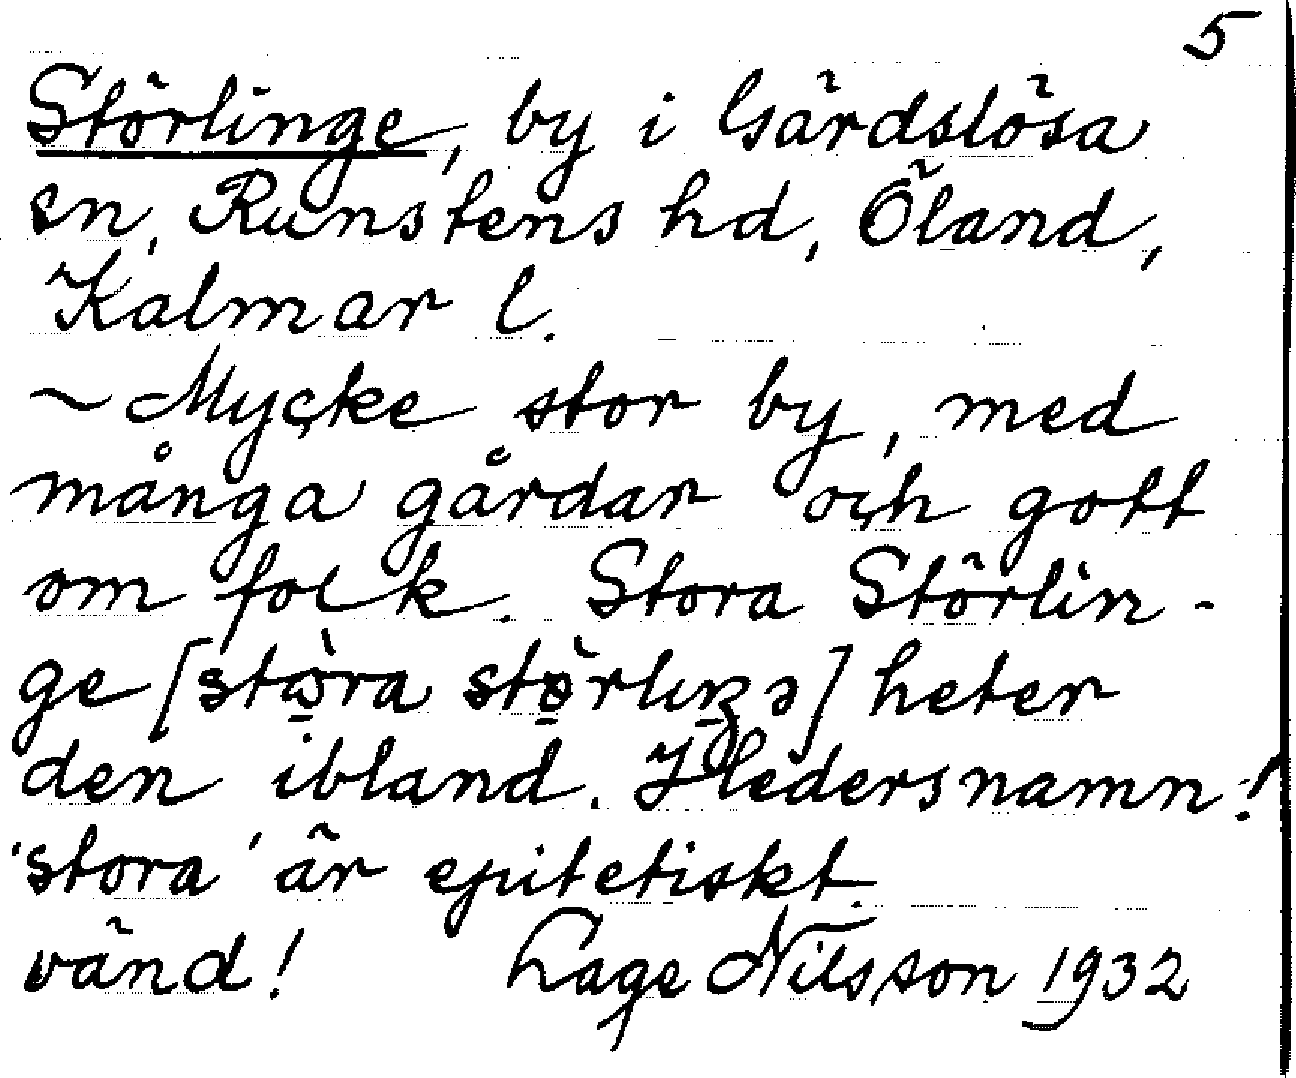 5
Störlinge, by i Gärdslösa
sn, Runstens hd, Öland,
Kalmar l.
~ Mycke stor by, med
många gårdar och gott
om folk. Stora Störlin-
ge [stὼ̣ra stö̀rlıŋə] heter
den ibland. Hedersnamn!
'stora' är epitetiskt.
vänd! Lage Nilsson 1932